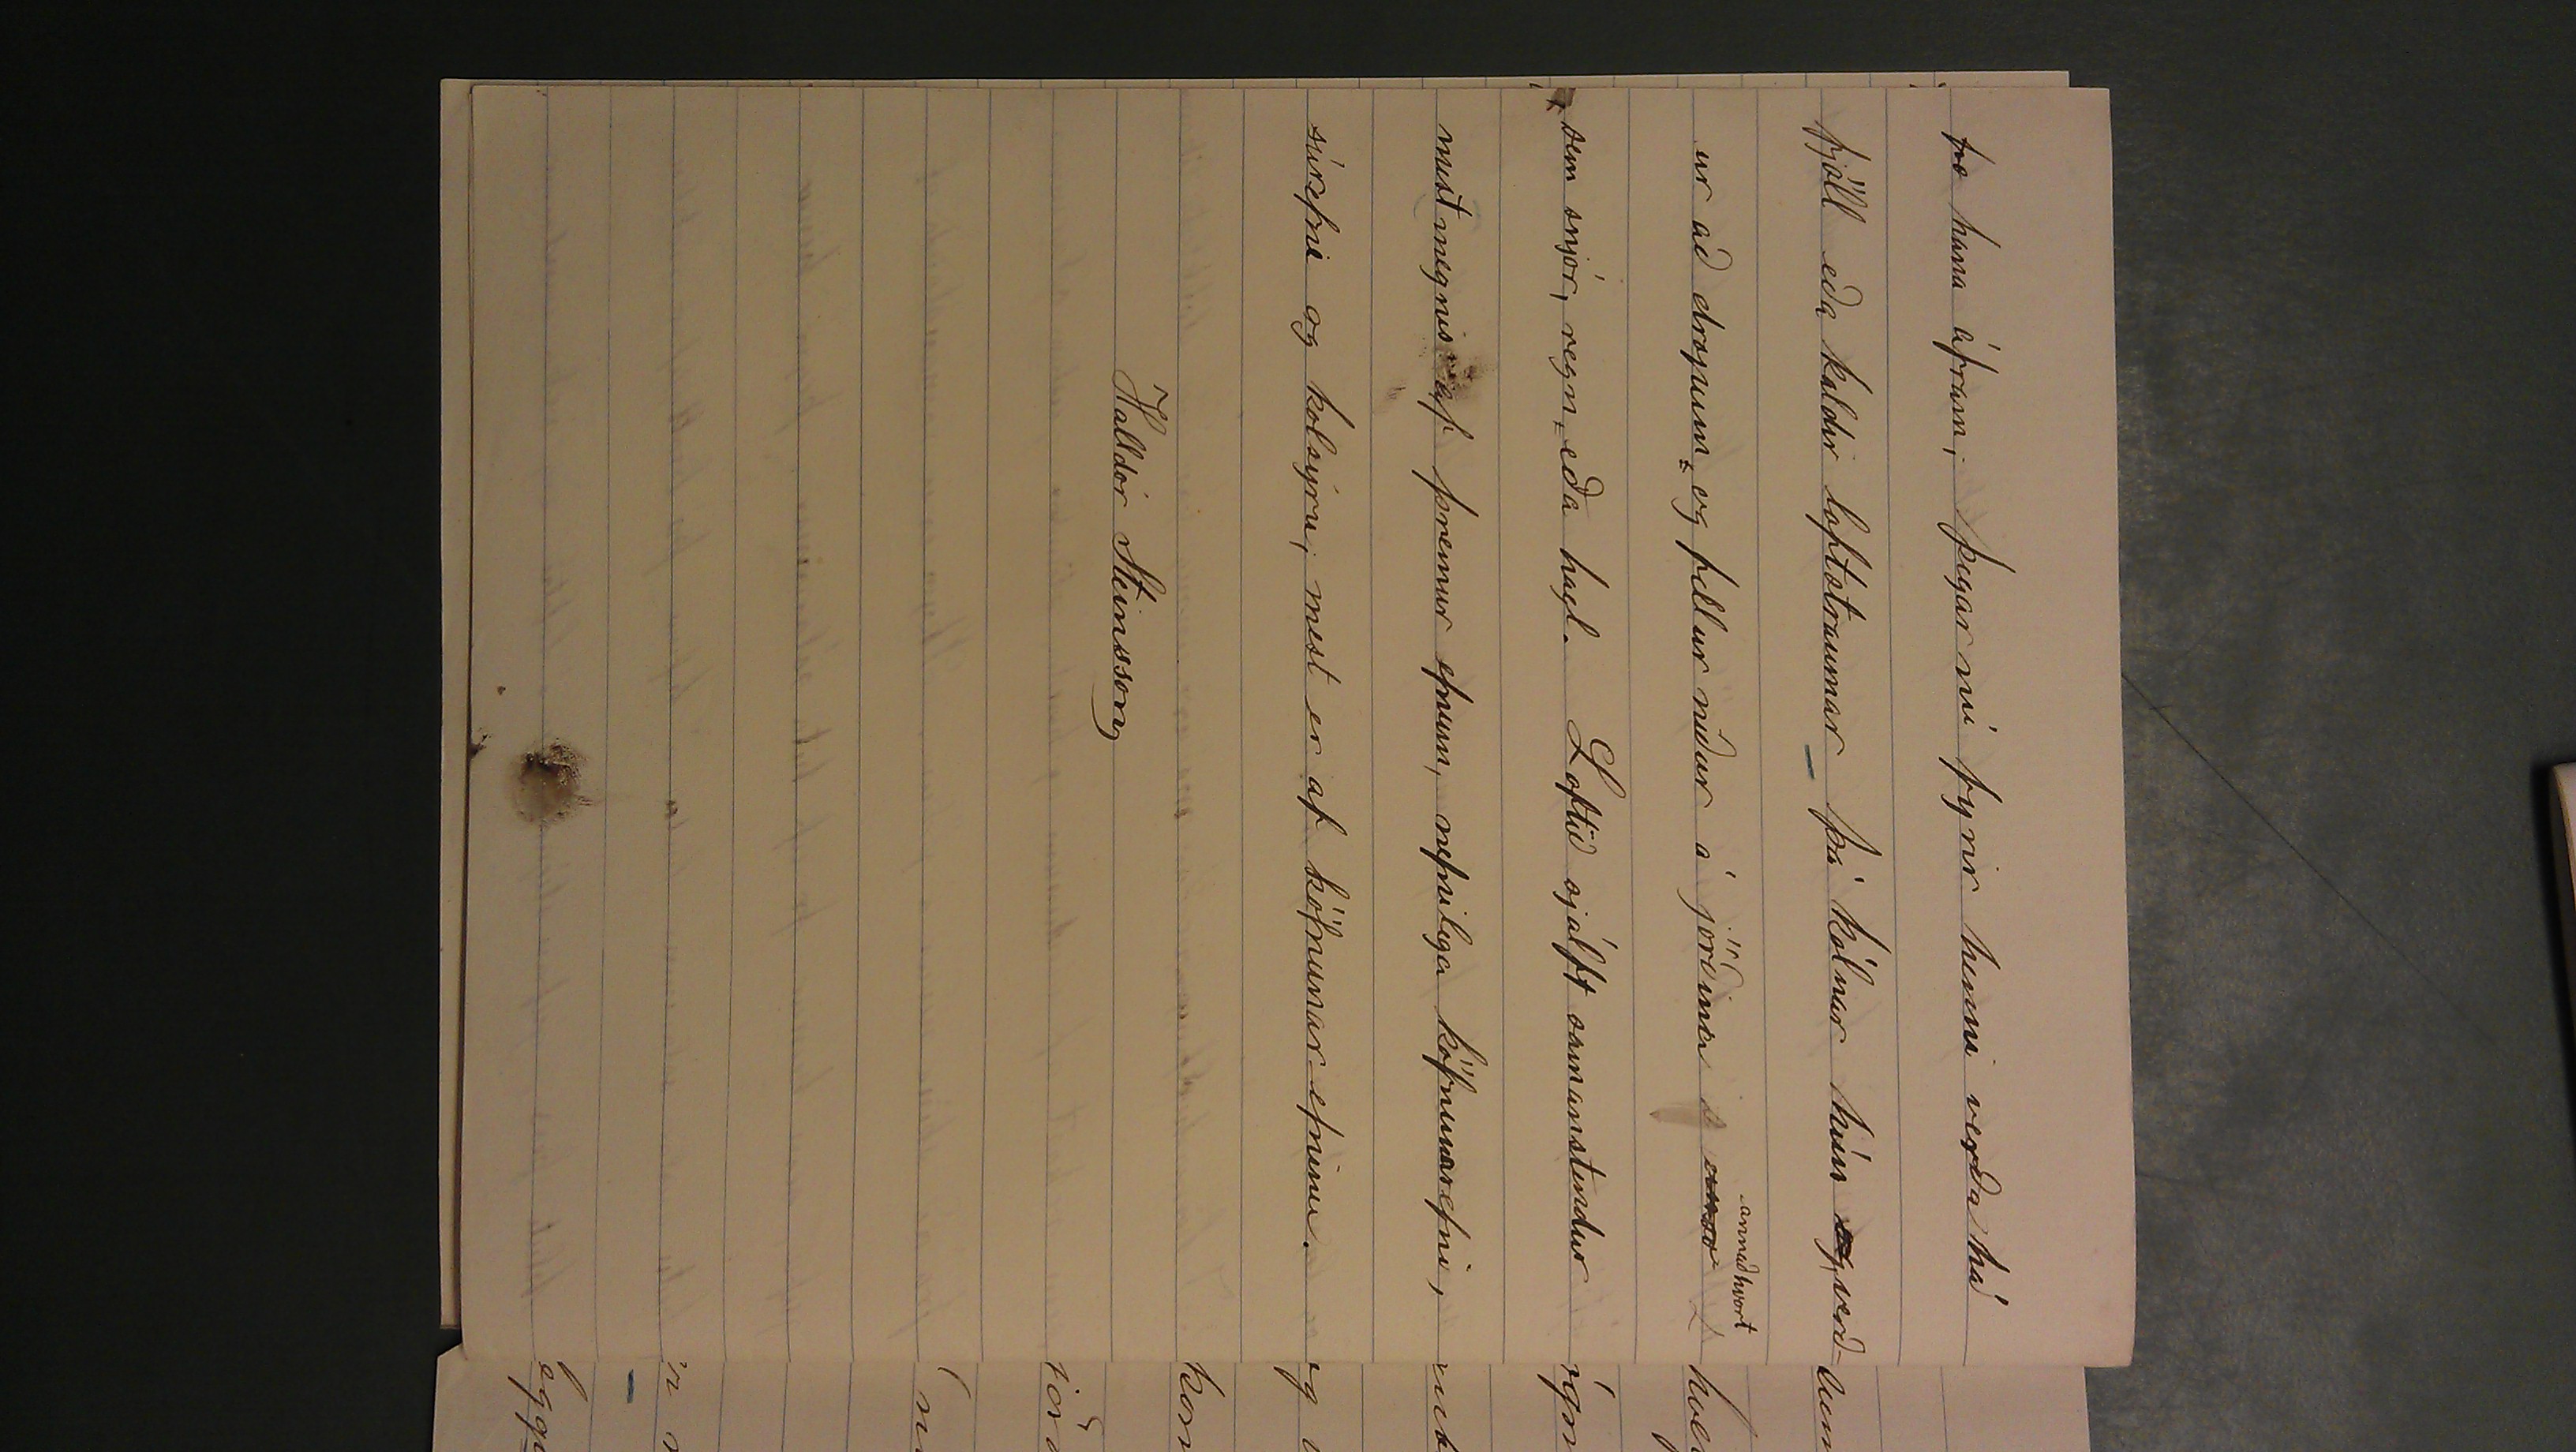 hana áfram; þegar nú fyrir henni verða há
fjöll eða kaldir loftstraumar þá kólnar hún verð-
ur að dropum, og fellur niður á jörðina annaðhvort
sem snjór, regn, eða hagl. Loftið sjálft samanstendur
mestmegnis af þremur efnum, nefnilega köfnunarefni,
súrefni og kolsýru; mest er af köfnunar-efninu.
Halldór Steinsson